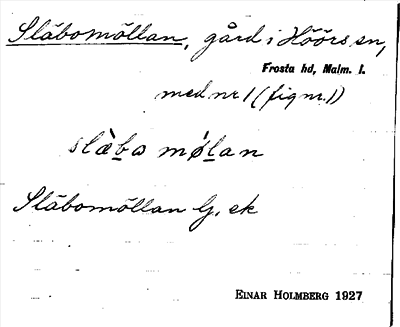 Släbomöllan, gård i Höörs sn,
Frosta hd, Malm. l.
med nr 1 (fig nr. 1)
slàba mǿlan
Släbomöllan G. ek
EINAR HOLMBERG 1927